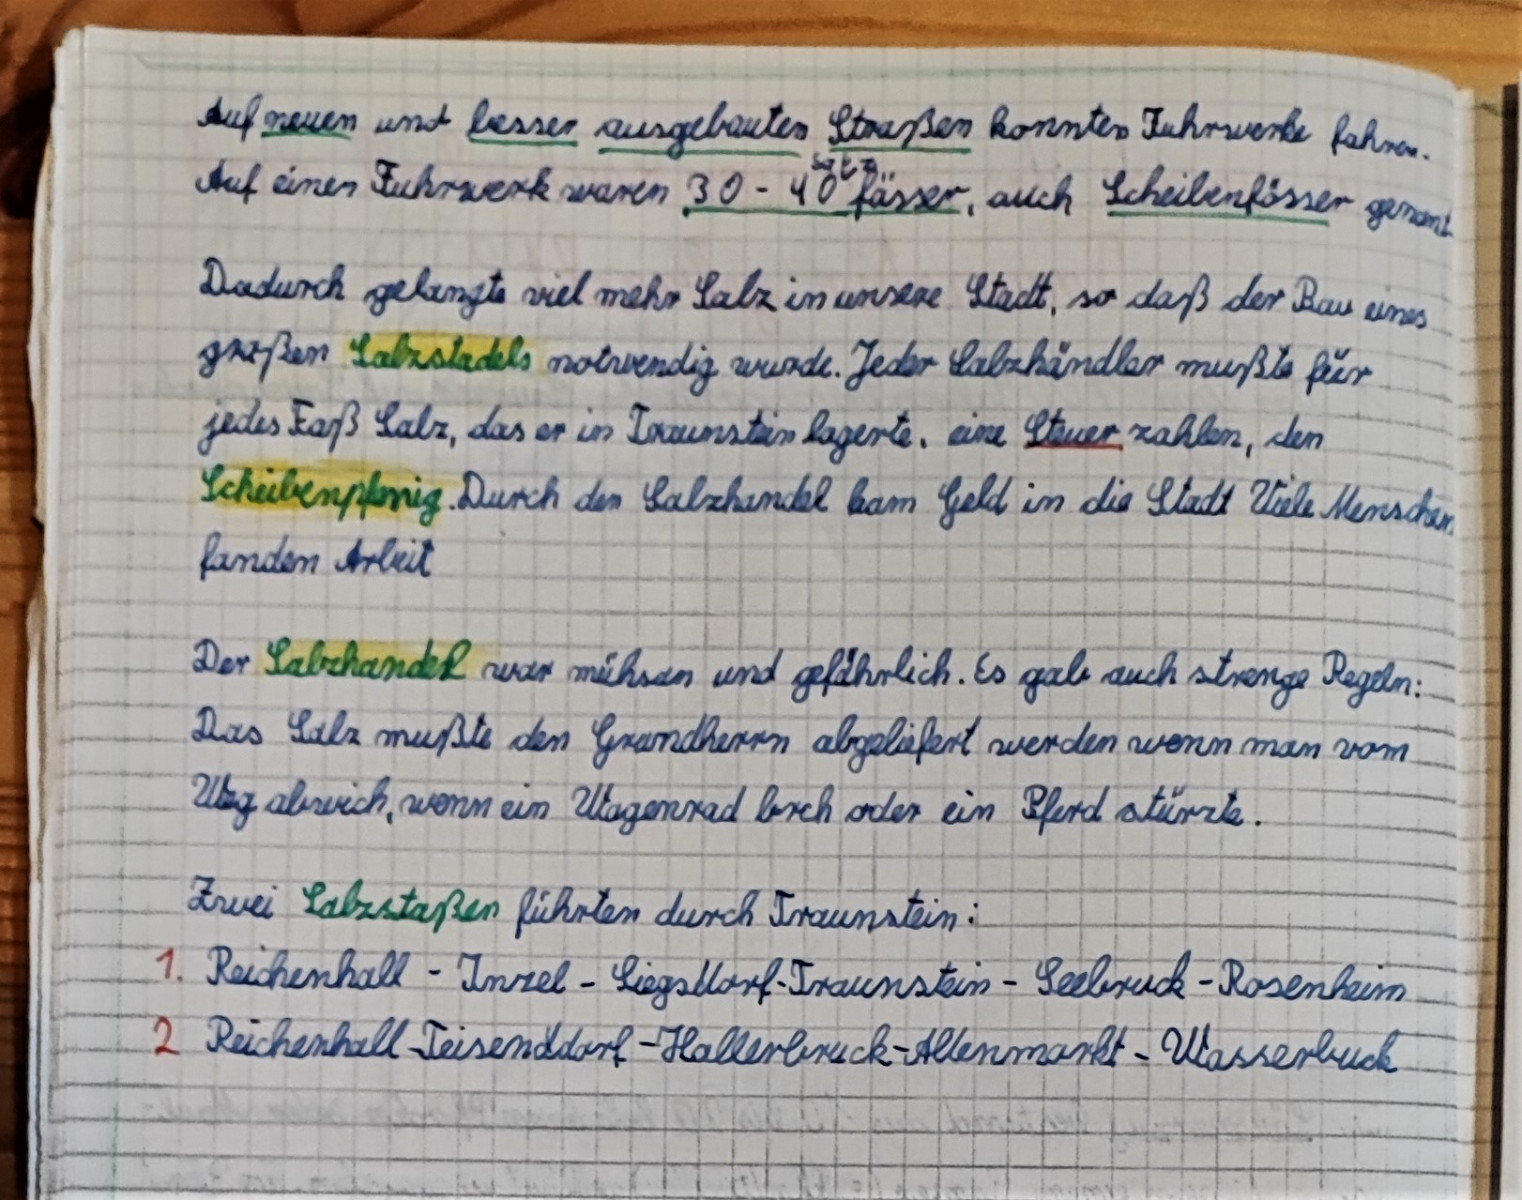 Auf neuen und besser ausgebauten Straßen konnten Fuhrwerke fahren.
Auf einen Fuhrwerk waren 30 - 40 Salzfässer, auch Scheibenfässer genannt
Dadurch gelangte viel mehr Salz in unsere Stadt, so daß der Bau eines
großen Salzstadels notwendig wurde. Jeder Salzhändler mußte für
jedes Faß Salz, das er in Traunstein lagerte, eine Steuer zahlen, den
Scheibenpfenig. Durch den Salzhandel kam Geld in die Stadt Viele Menschen
fanden Arbeit
Der Salzhandel war mühsam und gefährlich. Es gab auch strenge Regeln:
Das Salz mußte den Grundherrn abgeliefert werden wenn man vom
Weg abwich, wenn ein Wagenrad brch oder ein Pferd stürzte.
Zwei Salzstaßen führten durch Traunstein:
1. Reichenhall - Inzel - Siegsdorf - Traunstein - Seebruck - Rosenheim
2 Reichenhall - Teisenddorf - Hallerbruck - Altenmarkt - Wasserbuck